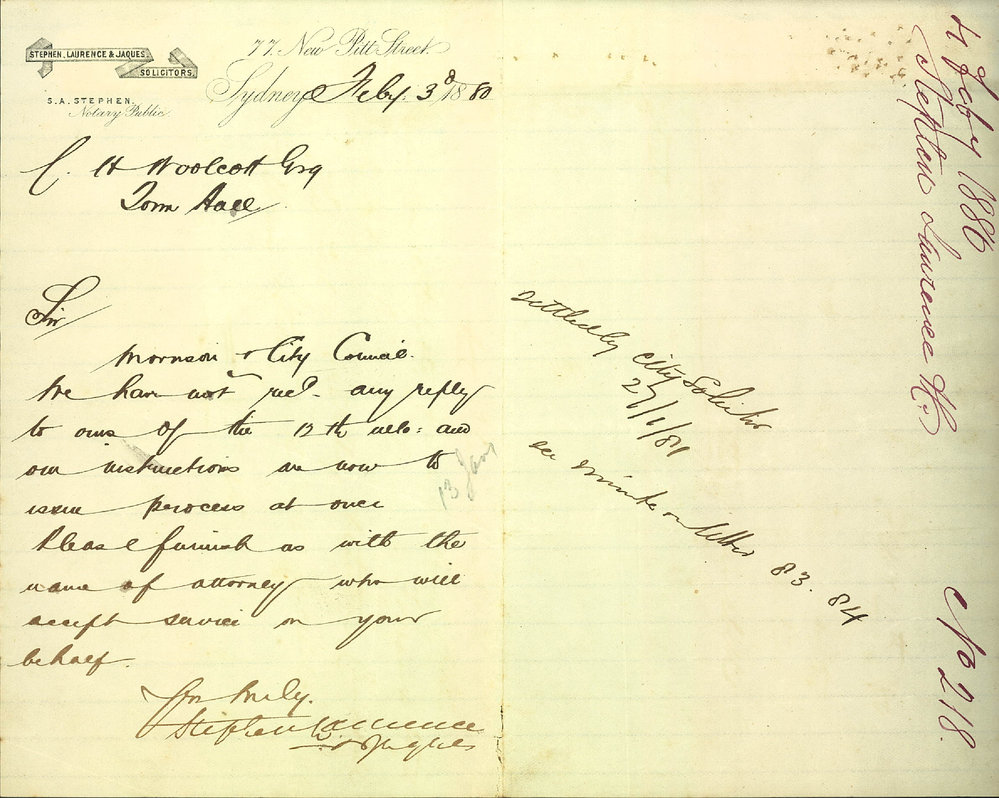 STEPHEN, LAURENCE & JAQUES.
SOLICITORS.
S.A. STEPHEN.
Notary Public
77 New Pitt Street
Sydney Feby. 3 1880
C. H Woolcott Esq
Town Hall
Sir
Morrison v City Council.
We have not recd. any reply
to ours of the 13th ulto: and
our instructions are now to
issue process at once
Please furnish us with the
name of attorney who will
accept service on your
behalf.
Yrs truly.
Stephen Laurence
& Jaques
13 Jany
settled by City Solicitor
27/1/81
see minute on letter 83.84
4 Feby 1880
Stephen Laurence &Co
No 218.